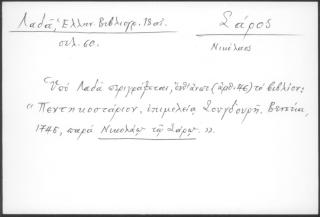 Λαδᾶ, Ἑλλην. Βιβλιογρ. 18 αἰ.
σελ. 60.
Σάρος
Νικόλαος
Ὑπό Λαδᾶ περιγράφεται, (ἀριθ. 46) τό βιβλίον:
"Πεντηκοστάριον, ἐπιμελείᾳ Σουγδουρῆ. Βενετία,
1745, παρά Νικολάῳ τῷ Σάρῳ".